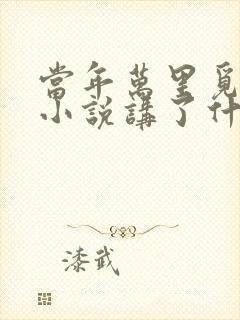 當年萬里覓
小說講了什
漆武